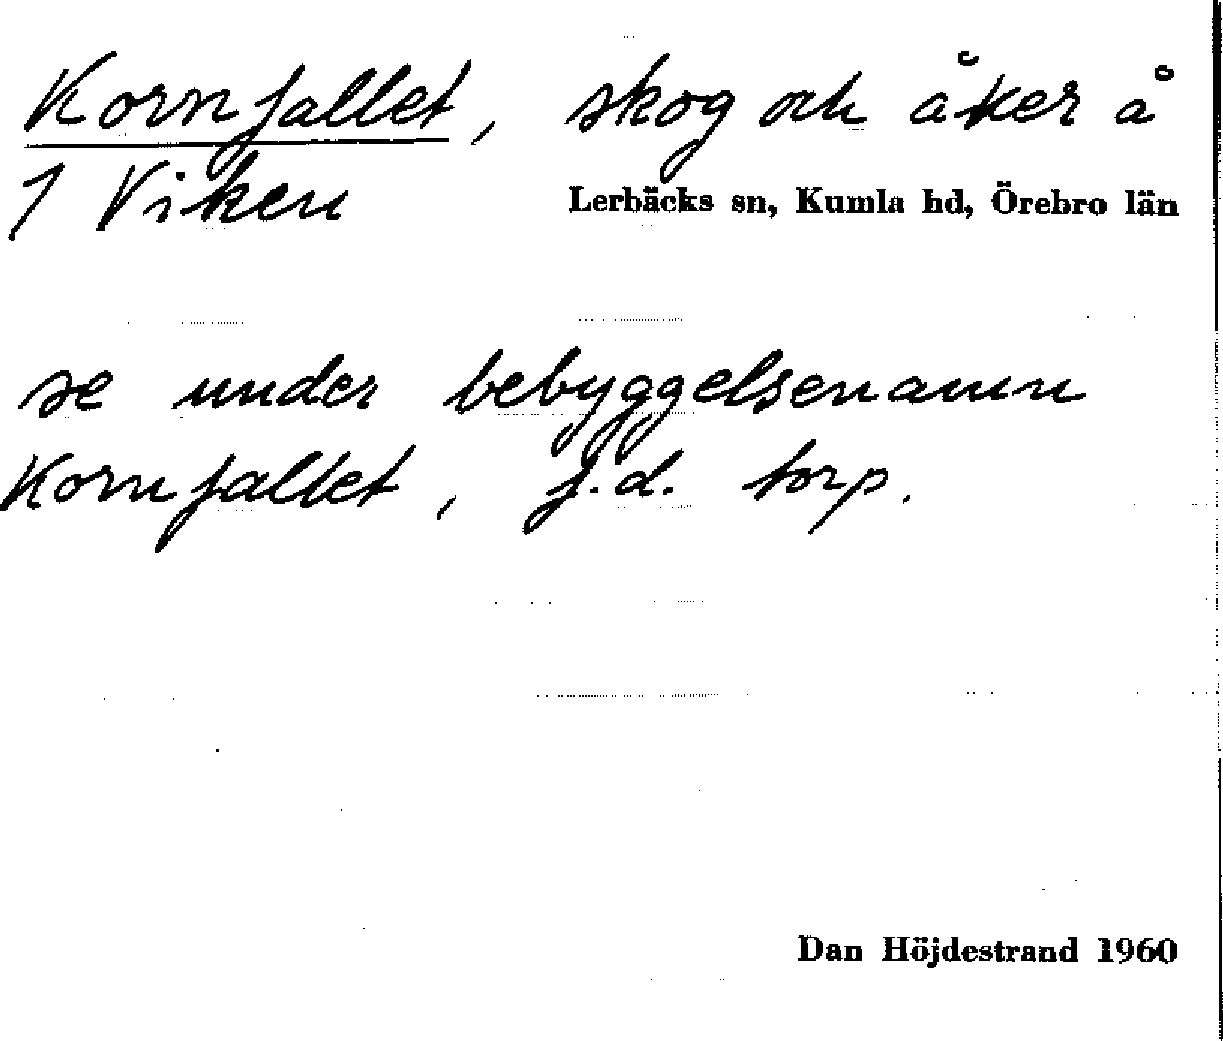 Kornfallet, skog och åker å
1 Viken Lerbäcks sn, Kumla hd, Örebro län
se under bebyggelsenamn
Kornfallet, f.d. torp.
Dan Höjdestrand 1960